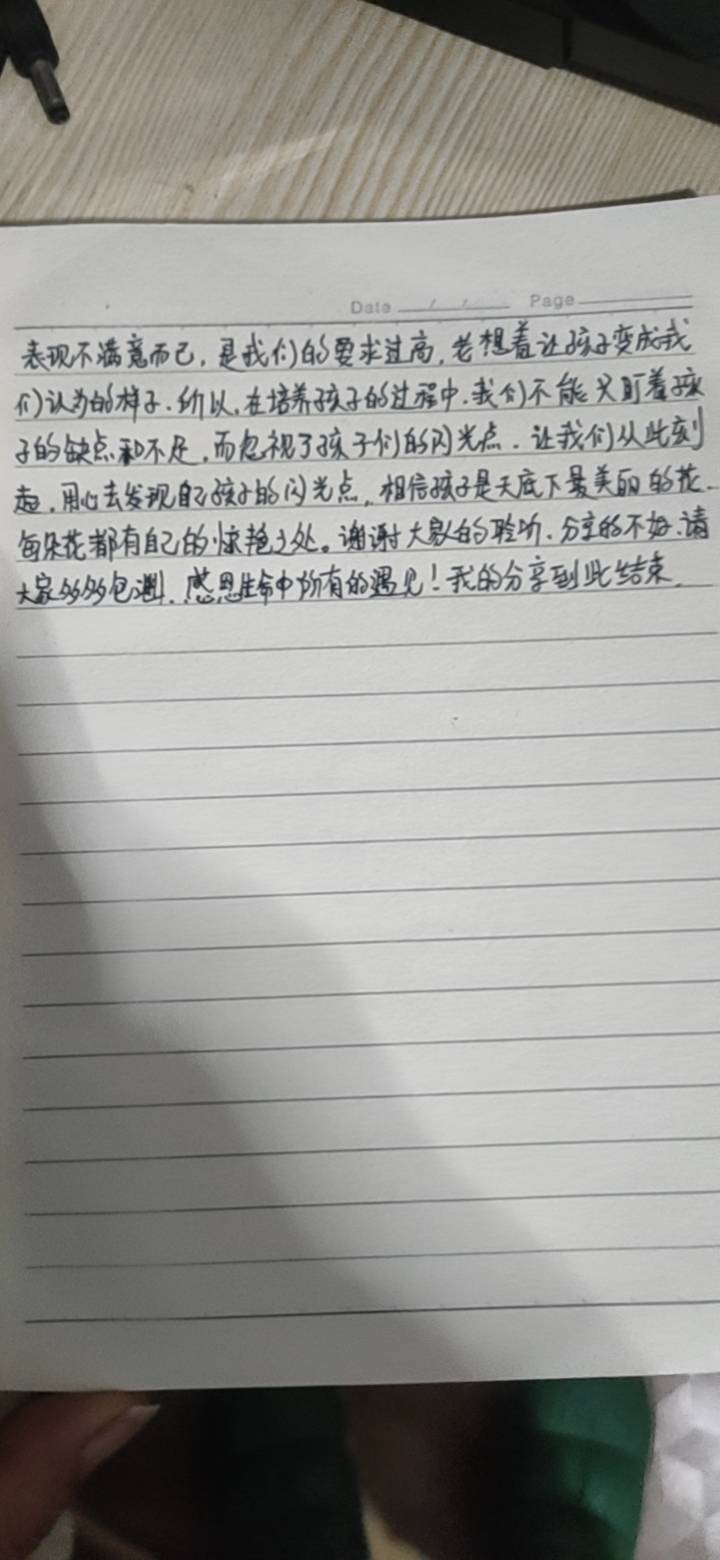 Date / / Page
表现不满意而已，是我们的要求过高，老想着让孩子变成我
们认为的样子.所以.在培养孩子的过程中.我们不能只盯着孩
子的缺点和不足，而忽视了孩子们的闪光点.让我们从此刻
起.用心去发现自己孩子的闪光点，相信孩子是天底下最美丽的花.
每朵花都有自己的惊艳之处。谢谢大家的聆听.分享的不好.请
大家多多包涵.感恩生命中所有的遇见！我的分享到此结束.